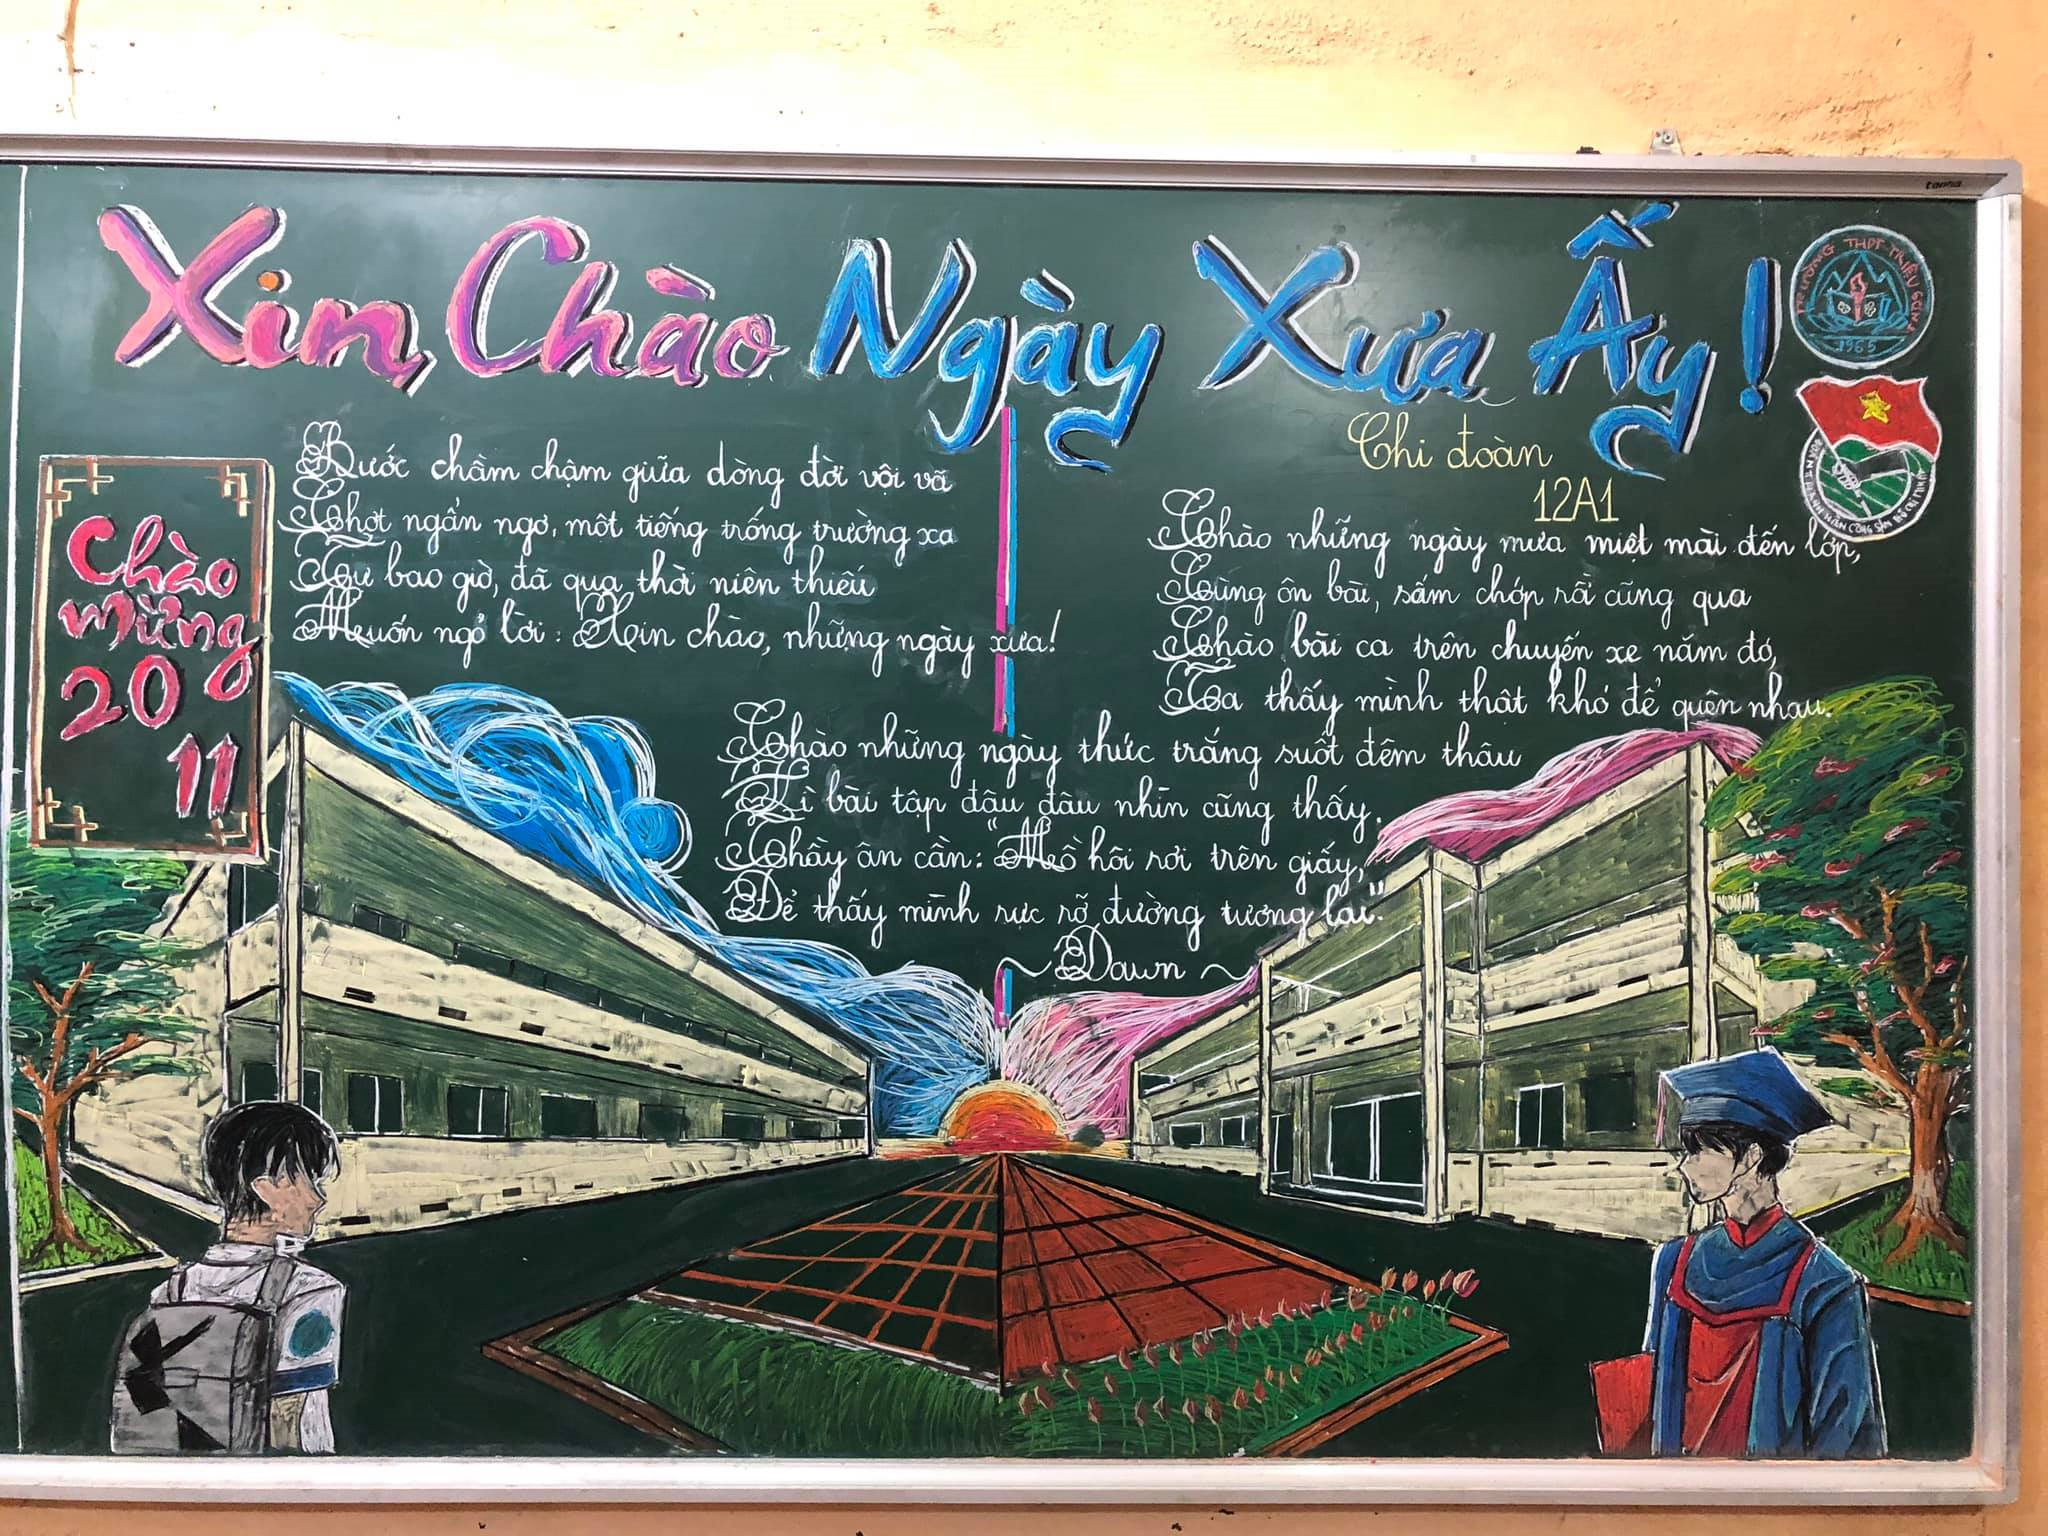 Xin Chào Ngày Xưa Ấy!
TRƯỜNG THPT THIÊN
1965
Chi đoàn
12A1
ĐOÀN THANH NIÊN CỘNG SẢN HỒ CHÍ MINH
Chào
mừng
20
11
Bước chầm chậm giữa dòng đời vội vã
Chợt ngẩn ngơ, một tiếng trống trường xa
Tự bao giờ, đã qua thời niên thiếu
Muốn ngỏ lời: Xin chào, những ngày xưa!
Chào những ngày mưa miệt mài đến lớp,
Cùng ôn bài, sấm chớp rồi cũng qua
Chào bài ca trên chuyến xe năm đó,
Ta thấy mình thật khó để quên nhau.
Chào những ngày thức trắng suốt đêm thâu
Vì bài tập đâu đâu nhìn cũng thấy.
Thầy ân cần: "Mồ hôi rơi trên giấy,
Để thấy mình rực rỡ đường tương lai."
~ Dawn ~